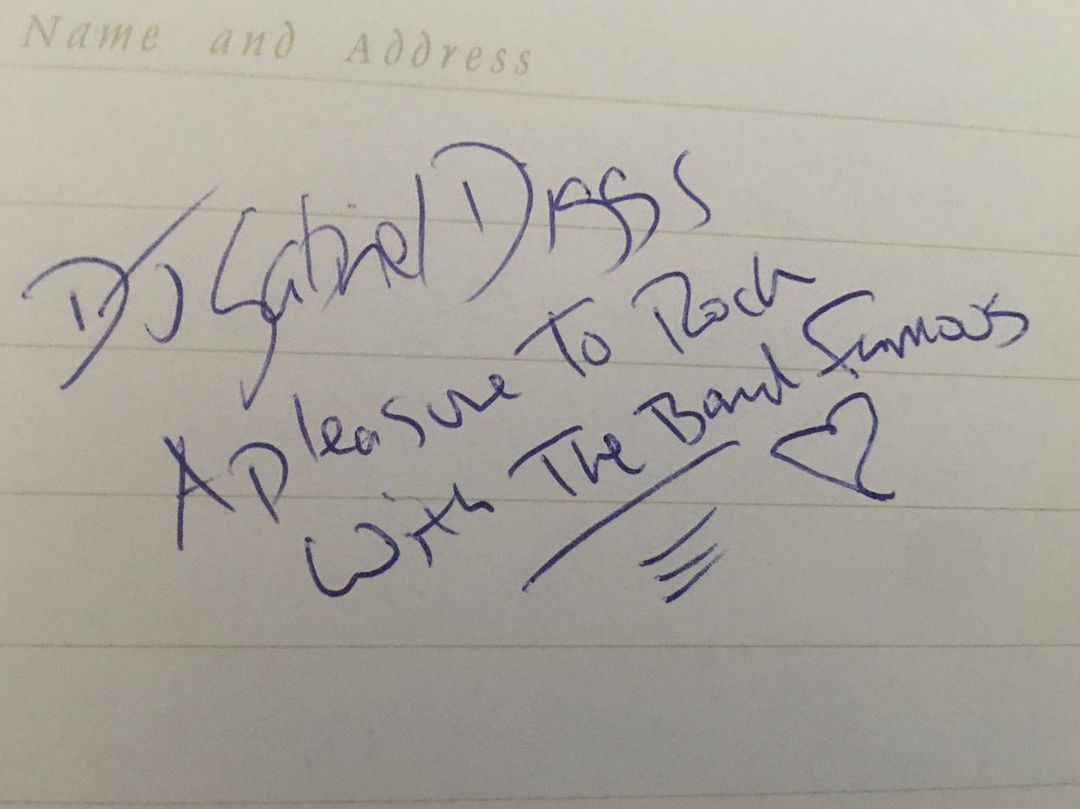 Name and Address
DJ Gabriel Diggs
A pleasure To Rock
With The Band Famous